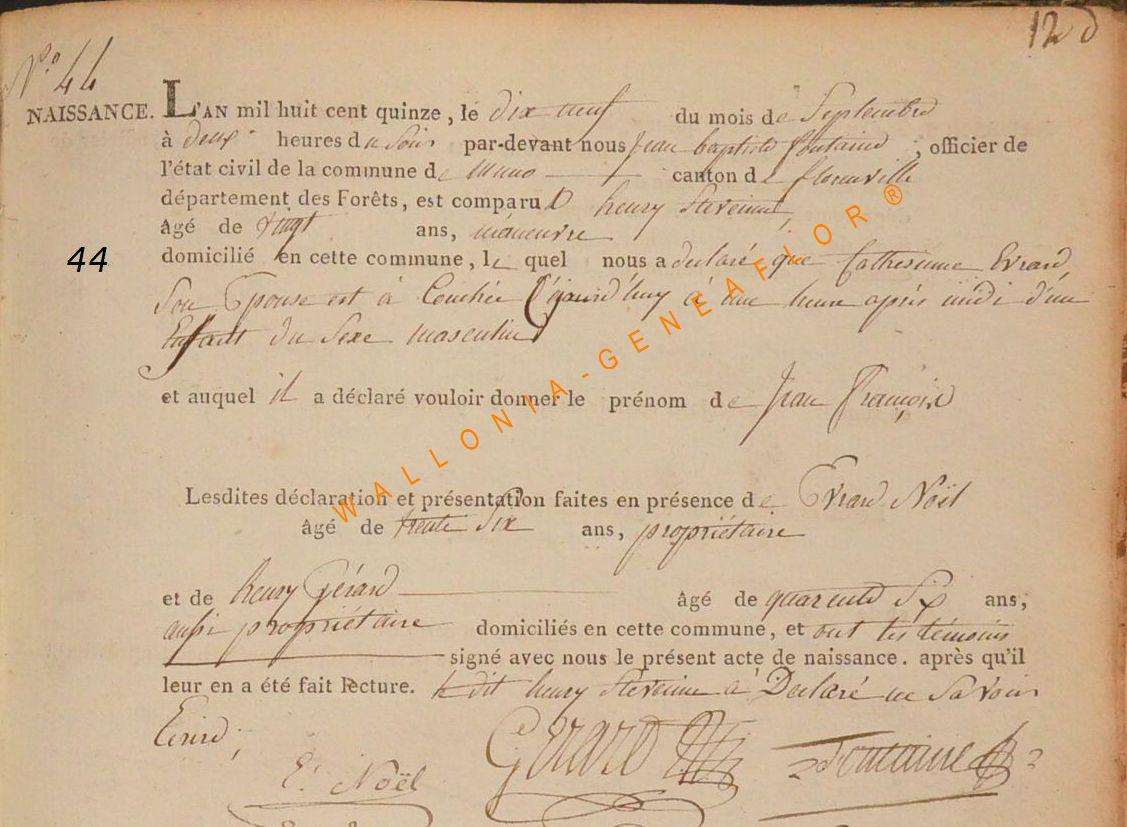 12 d
N.° 44
NAISSANCE. L'AN mil huit cent quinze, le dix neuf du mois de Septembre
à deux heures du Soir par-devant nous Jean baptiste fontaine, officier de
l'état civil de la commune de muno canton de florenville
département des Forêts, est comparu henry Stevenin,
âgé de vingt ans, manœuvre
44
domicilié en cette commune, le quel nous a declaré que Catherinne Evrard,
Son Epouse est à Couchée aujourd'huy à une heure après midi d'un
Enfant du Sexe masculin
et auquel il a déclaré vouloir donner le prénom de Jean François
WALLONIA-GENEAFLOR ®
Lesdites déclaration et présentation faites en présence de Evrard Noël
âgé de trente Six ans, propriétaire
et de henry Gérard âgé de quarente Six ans,
aussi propriétaire domiciliés en cette commune, et ont les témoins
signé avec nous le présent acte de naissance. après qu'il
leur en a été fait lecture. le dit henry a Declaré ne Savoir
Ecrire.
E. Noël Gérard Fontaine